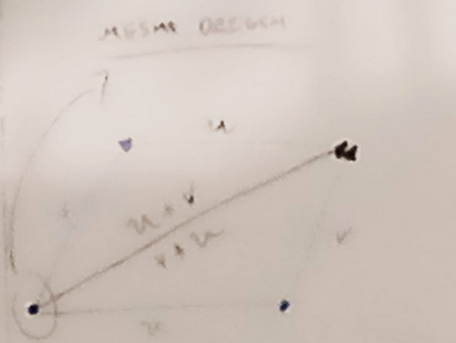 MESMA ORIGEM
u
v
u+v
v+u
v
u